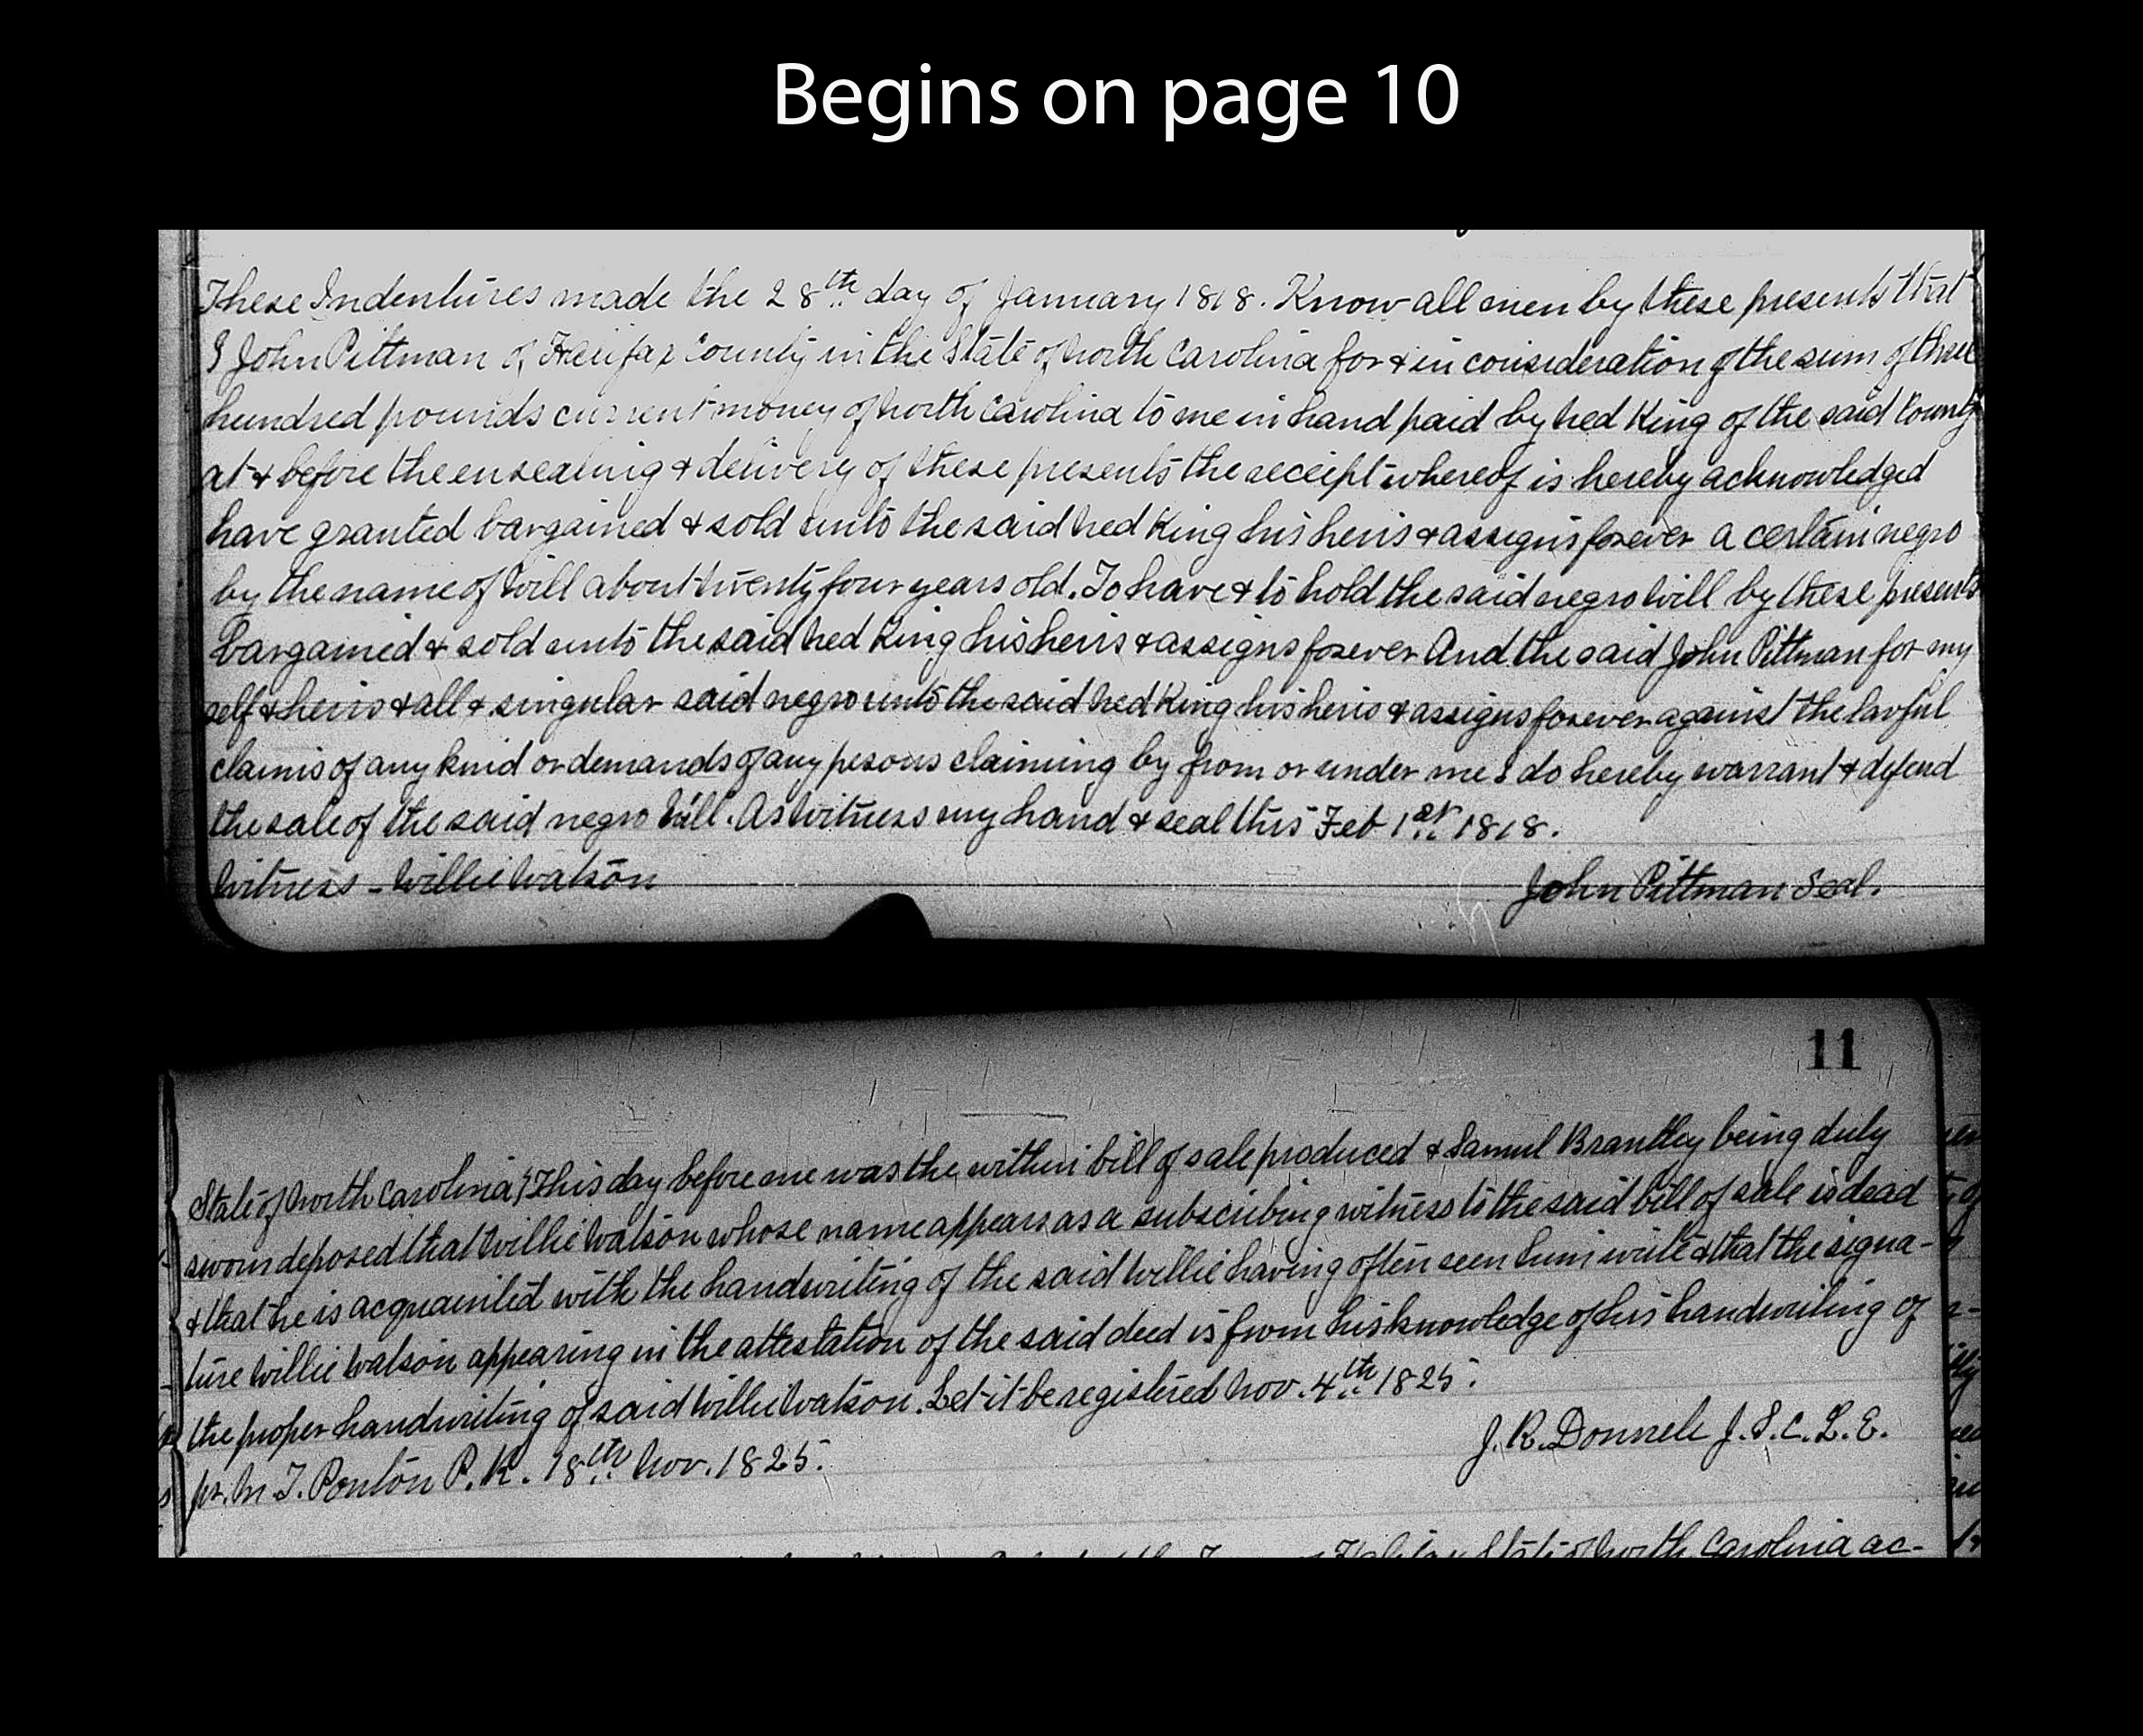 Begins on page 10
These Indentures made the 28th day of January 1818. Know all men by these presents that
I John Pittman of Halifax County in the State of North Carolina for & in consideration of the sum of three
hundred pounds current money of North Carolina to me in hand paid by Ned King of the said County
at & before the ensealing & delivery of these presents the receipt whereof is hereby acknowledged
have granted bargained & sold unto the said Ned King his heris & assigns forever a certain negro
by the name of Will about twenty four years old. To have & to hold the said negro Will by these presents
bargained & sold unto the said Ned King his heris & assigns forever And the said John Pittman for my
self & heirs & all & singular said negro unto the said Ned King his heris & assigns forever against the lawful
claims of any kind or demands of any pesons claiming by from or under me I do hereby warrant & defend
the sale of the said negro Will. As Witness my hand & seal this Feb 1st 1818.
Witness - Willie Watson John Pittman Seal.
11
State of North Carolina } This day before me was the within bill of sale produced & Samul Brantley being duly
sworn deposed that Willie Watson whose name appears as a subscribing witness to the said bill of sale is dead
& that he is acquainted with the handwriting of the said Willie having often seen him write & that the signa-
ture Willie Watson appearing in the attestation of the said deed is from his knowledge of his handwriting of
the proper handwriting of said Willie Watson. Let it be registered Nov. 4th 1825.
J. R. Donnell J. S. C. L. E.
pr. M. T. Ponton P. R. 18th Nov. 1825.
State of North Carolina ac-